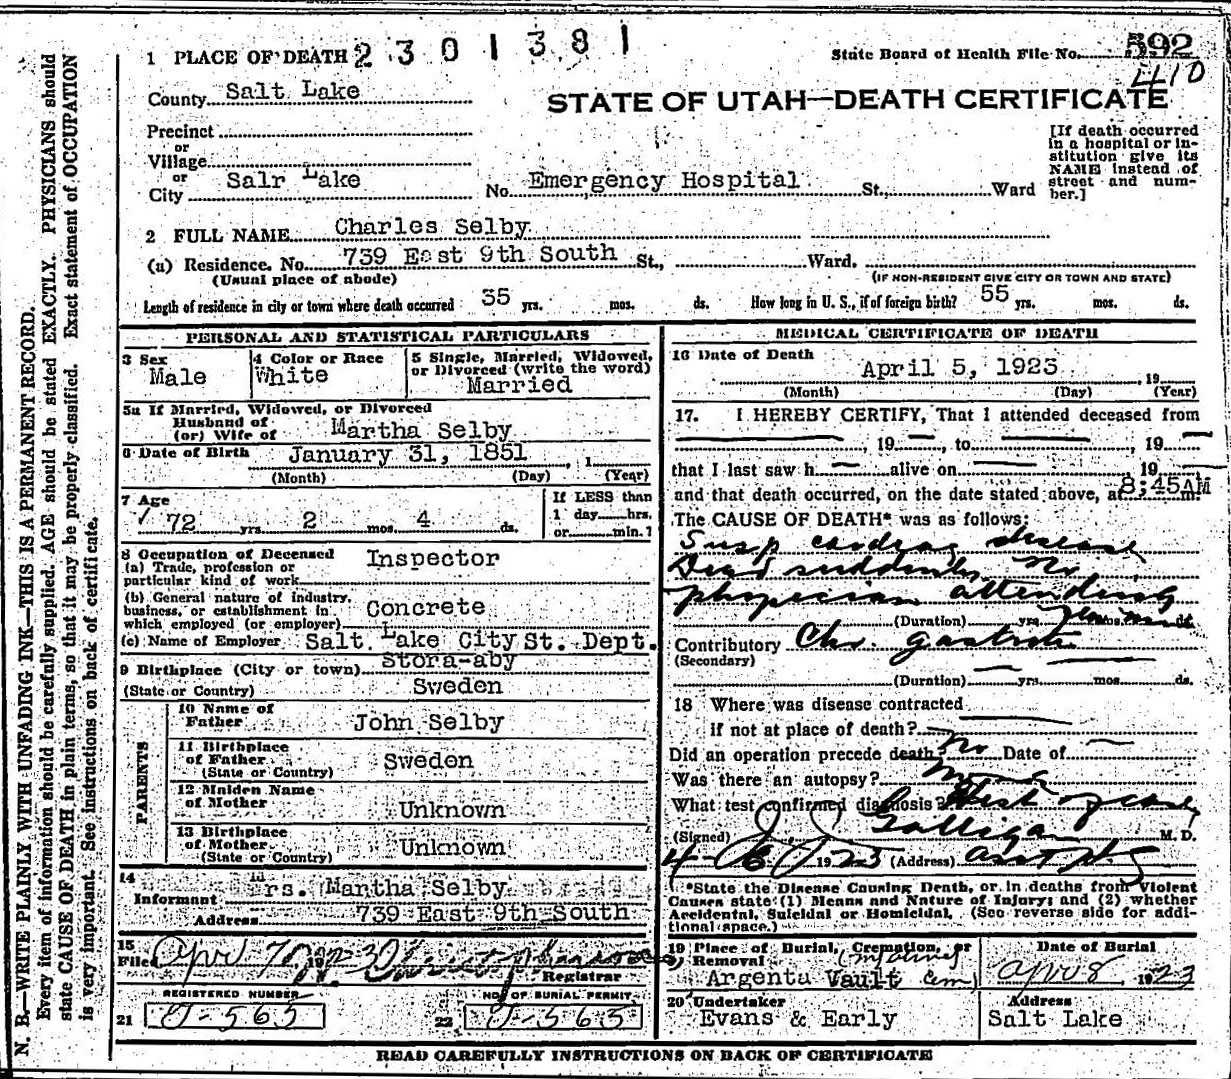 1 PLACE OF DEATH 2301381
State Board of Health File No. 592
4110
County Salt Lake
STATE OF UTAH—DEATH CERTIFICATE
Precinct
or
Village
or
City Salr Lake No. Emergency Hospital St., Ward
[If death occurred
in a hospital or in-
stitution give its
NAME instead of
street and num-
ber.]
2 FULL NAME Charles Selby
(a) Residence. No. 739 East 9th South St., Ward.
(Usual place of abode) (IF NON-RESIDENT GIVE CITY OR TOWN AND STATE)
Length of residence in city or town where death occurred 35 yrs. mos. ds. How long in U. S., if of foreign birth? 55 yrs. mos. ds.
PERSONAL AND STATISTICAL PARTICULARS
3 Sex
Male
4 Color or Race
White
5 Single, Married, Widowed,
or Divorced (write the word)
Married
5a If Married, Widowed, or Divorced
Husband of
(or) Wife of Martha Selby
6 Date of Birth January 31, 1851, 1
(Month) (Day) (Year)
7 Age
72 yrs. 2 mos. 4 ds.
If LESS than
1 day hrs.
or min.?
8 Occupation of Deceased
(a) Trade, profession or
particular kind of work Inspector
(b) General nature of industry,
business, or establishment in
which employed (or employer) Concrete
(c) Name of Employer Salt Lake City St. Dept.
9 Birthplace (City or town) Stora-aby
(State or Country) Sweden
PARENTS
10 Name of
Father John Selby
11 Birthplace
of Father Sweden
(State or Country)
12 Maiden Name
of Mother Unknown
13 Birthplace
of Mother Unknown
(State or Country)
14
Informant Mrs. Mantha Selby
Address 739 East 9th South
15
Filed April 7
Registrar
REGISTERED NUMBER NO. OF BURIAL PERMIT
21 J-563 22 J-563
MEDICAL CERTIFICATE OF DEATH
16 Date of Death
April 5, 1923, 19
(Month) (Day) (Year)
17. I HEREBY CERTIFY, That I attended deceased from
— , 19 — , to — , 19 —
that I last saw h — alive on — , 19 —
and that death occurred, on the date stated above, at 8:45AM m.
The CAUSE OF DEATH* was as follows:
Susp cardiac disease
Died suddenly no
physician attending
(Duration) yrs. mos. ds.
Contributory Chr. gastritis
(Secondary)
(Duration) — yrs. — mos. ds.
18 Where was disease contracted
if not at place of death? —
Did an operation precede death? No Date of —
Was there an autopsy? No
What test confirmed diagnosis? Hist of case
(Signed) J. J. Galligan M. D.
4-6 1923 (Address)
*State the Disease Causing Death, or in deaths from Violent
Causes state (1) Means and Nature of Injury; and (2) whether
Accidental, Suicidal or Homicidal. (See reverse side for addi-
tional space.)
19 Place of Burial, Cremation, or
Removal
Argenta Vault Cem
Date of Burial
Apr 8 1923
20 Undertaker
Evans & Early
Address
Salt Lake
READ CAREFULLY INSTRUCTIONS ON BACK OF CERTIFICATE
N. B.—WRITE PLAINLY WITH UNFADING INK—THIS IS A PERMANENT RECORD.
Every item of information should be carefully supplied. AGE should be stated EXACTLY. PHYSICIANS should
state CAUSE OF DEATH in plain terms, so that it may be properly classified. Exact statement of OCCUPATION
is very important. See instructions on back of certificate.